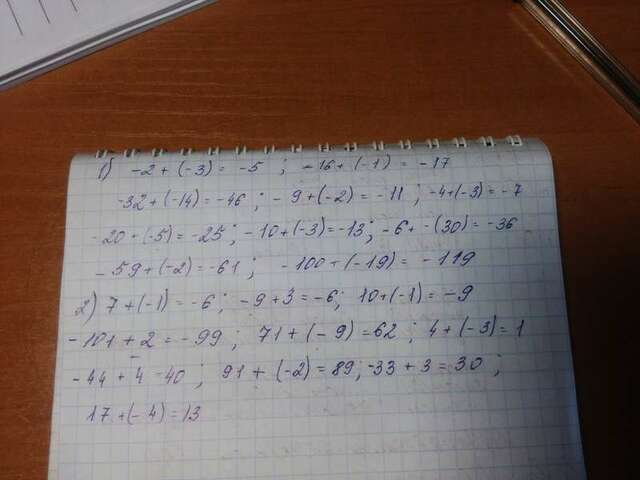 1) -2 + (-3) = -5 ; -16 + (-1) = -17
-32 + (-14) = -46 ; -9 + (-2) = -11 ; -4 + (-3) = -7
-20 + (-5) = -25 ; -10 + (-3) = -13 ; -6 + -(30) = -36
-59 + (-2) = -61 ; -100 + (-19) = -119
2) 7 + (-1) = -6 ; -9 + 3 = -6 ; 10 + (-1) = -9
-101 + 2 = -99 ; 71 + (-9) = 62 ; 4 + (-3) = 1
-44 + 4 = -40 ; 91 + (-2) = 89 ; -33 + 3 = 30 ;
17 + (-4) = 13